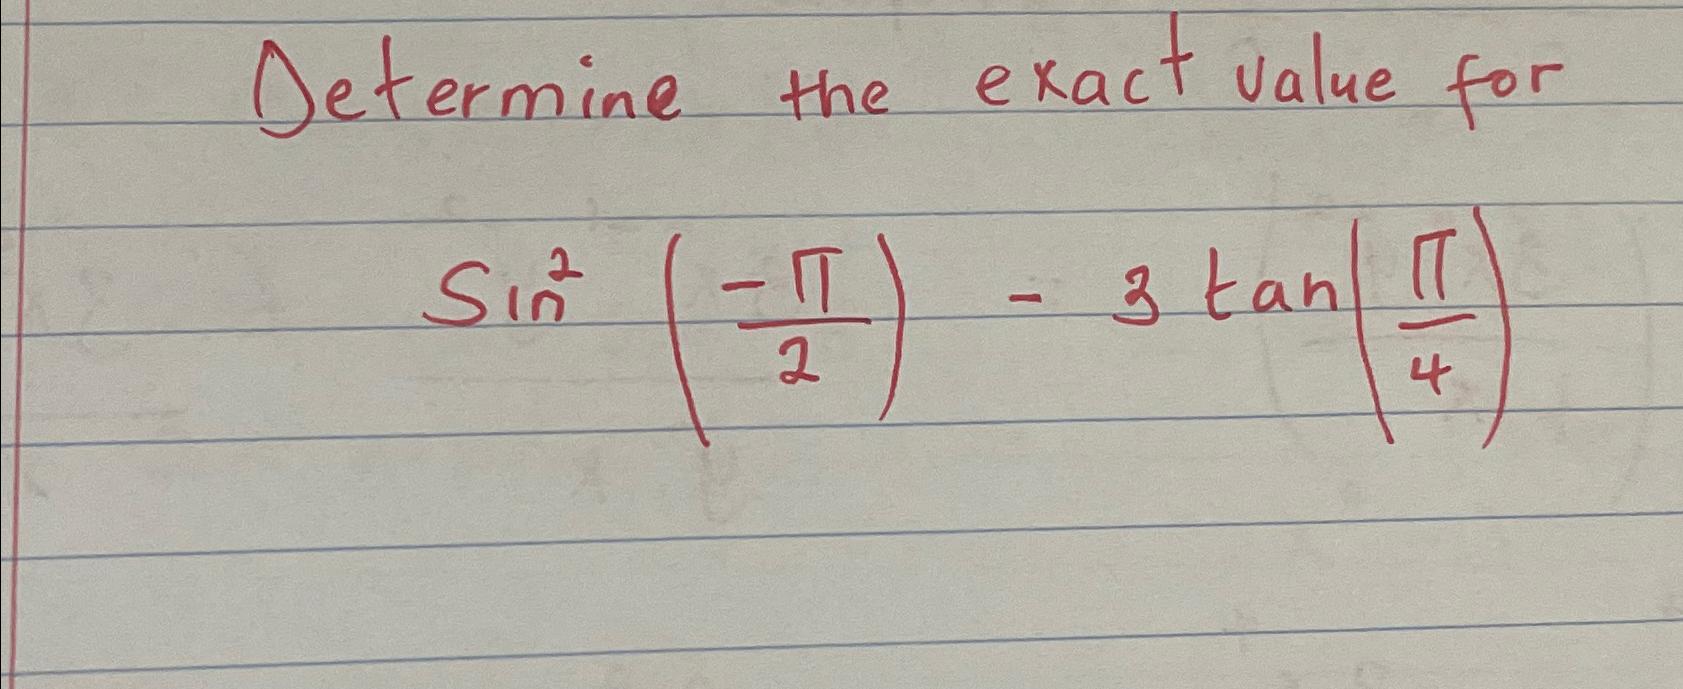 Determine the exact value for
Sin² (-π/2) - 3 tan(π/4)